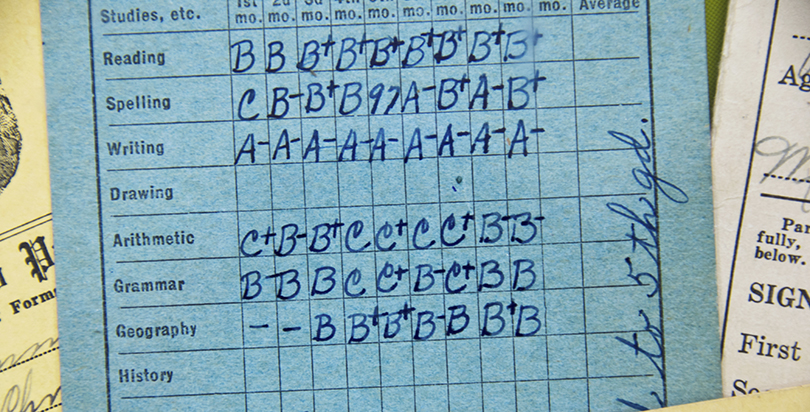 Studies, etc. mo. mo. mo. mo. mo. mo. mo. mo. mo. mo. Average
Reading B B B+ B+ B+ B+ B+ B+ B+
Spelling C B- B+ B 97 A- B+ A- B+
Writing A- A- A- A- A- A- A- A- A-
Drawing
Arithmetic C+ B- B+ C C+ C C+ B- B-
Grammar B- B B C C+ B- C+ B B
Geography - - B B+ B+ B- B B+ B
History
to 5th gd.
Form
Par
fully,
below.
SIGN
First